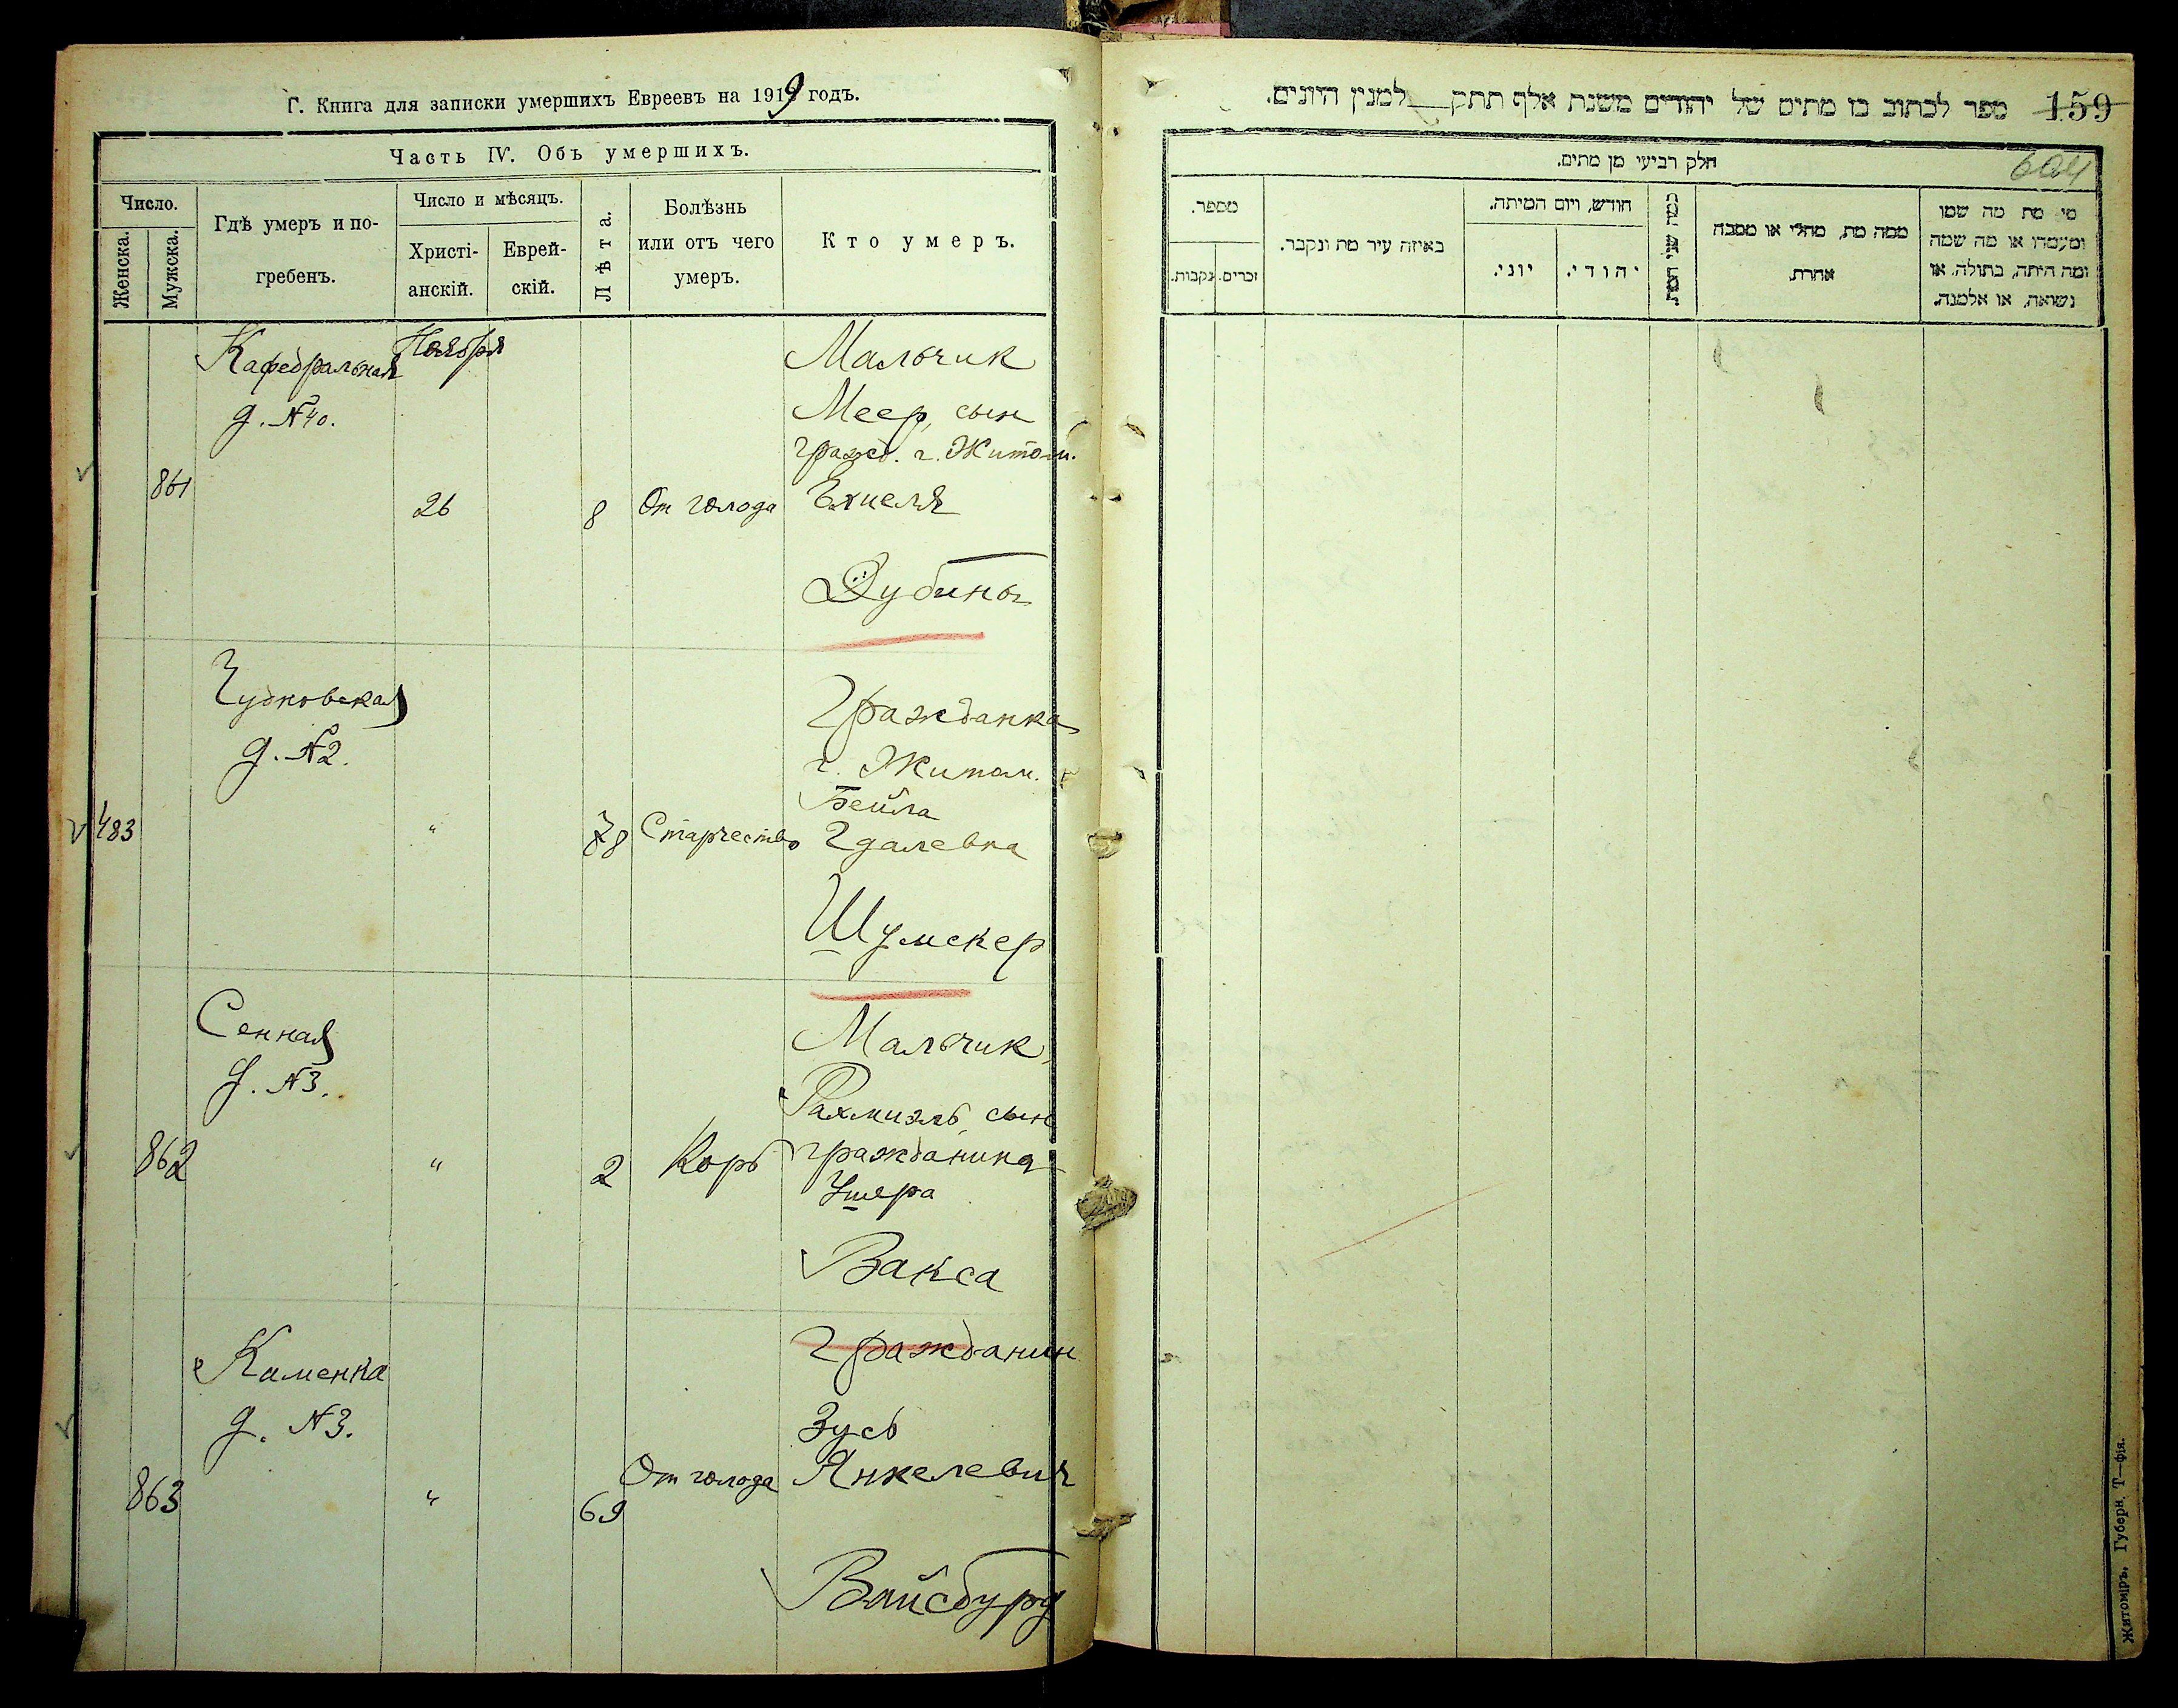 Г. Книга для записки умершихъ Евреевъ на 1919 годъ.
Часть IV. Объ умершихъ.
Число.
Женска.
Мужска.
Гдѣ умеръ и по-
гребенъ.
Число и мѣсяцъ.
Христі-
анскій.
Еврей-
скій.
Лѣта.
Болѣзнь
или отъ чего
умеръ.
Кто умеръ.
Кафедральная
д. №40.
Ноября
861
26
8
От голода
Мальчик
Меер, сын
гражд. г. Житом.
Ехиеля
Дубины
Чудновская
д. №2.
483
"
78
Старчество
Гражданка
г. Житом.
Бейла
Гдалевна
Шумскер
Сенная
д. №3.
862
"
2
Корь
Мальчик,
Рахмиэль, сын
гражданина
Ушера
Вакса
Каменка
д. №3.
863
"
69
От голода
Гражданин
Зусь
Янкелевич
Вайсбурд
159
ספר לכתוב בו מתים של יהודים משנת אלף תתק למנין היונים.
604
חלק רביעי מן מתים.
מספר.
נקבות.
זכרים.
באיזה עיר מת ונקבר.
חודש, ויום המיתה.
יוני.
יהודי.
ממה מת, מחלי או מסבה
אחרת.
מי מת מה שמו
ומעמדו או מה שמה
ומה היתה, בתולה, או
נשואה, או אלמנה.
Житоміръ, Губерн. Т—фія.